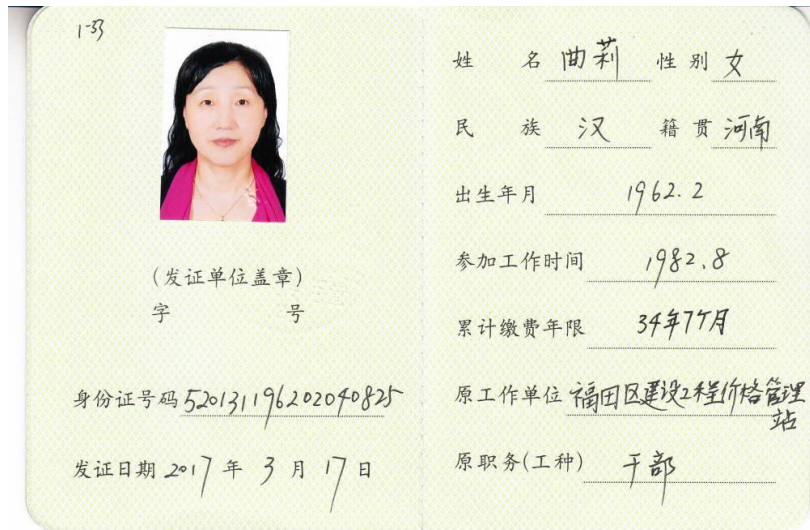 1-33
(发证单位盖章)
字 号
身份证号码 520131196202040825
发证日期 2017 年 3 月 17 日
姓 名 曲莉 性别 女
民 族 汉 籍贯 河南
出生年月 1962.2
参加工作时间 1982.8
累计缴费年限 34年7个月
原工作单位 福田区建设工程价格管理
站
原职务(工种) 干部